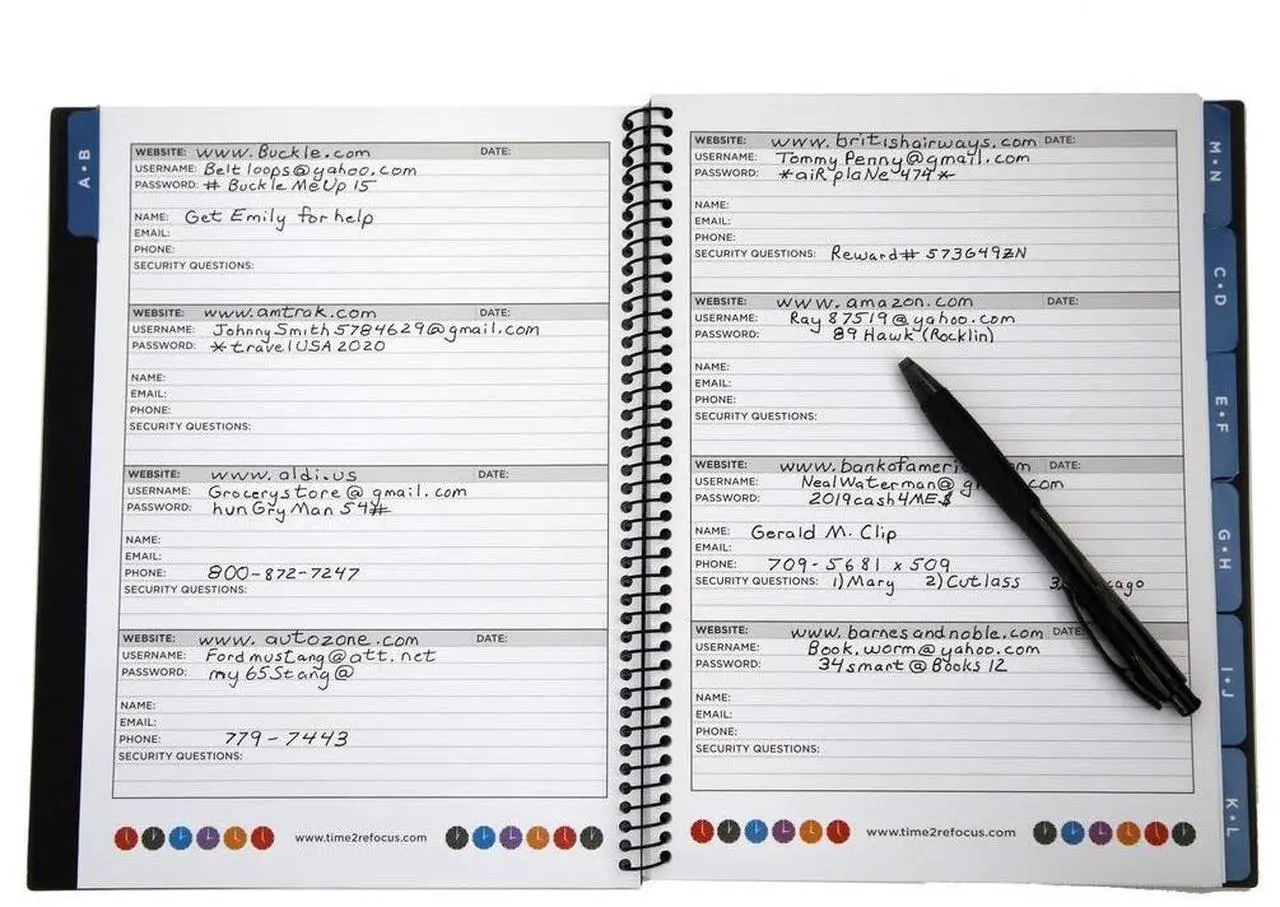 A • B
WEBSITE: www.Buckle.com DATE:
USERNAME: Beltloops@yahoo.com
PASSWORD: # BuckleMeUp 15
NAME: Get Emily for help
EMAIL:
PHONE:
SECURITY QUESTIONS:
WEBSITE: www.amtrak.com DATE:
USERNAME: JohnnySmith5784629@gmail.com
PASSWORD: *travelUSA2020
NAME:
EMAIL:
PHONE:
SECURITY QUESTIONS:
WEBSITE: www.aldi.us DATE:
USERNAME: Grocerystore@gmail.com
PASSWORD: hunGryMan54#
NAME:
EMAIL:
PHONE: 800-872-7247
SECURITY QUESTIONS:
WEBSITE: www.autozone.com DATE:
USERNAME: Fordmustang@att.net
PASSWORD: my65Stang@
NAME:
EMAIL:
PHONE: 779-7443
SECURITY QUESTIONS:
www.time2refocus.com
WEBSITE: www.britishairways.com DATE:
USERNAME: TommyPenny@gmail.com
PASSWORD: *aiRplaNe474*
NAME:
EMAIL:
PHONE:
SECURITY QUESTIONS: Reward# 573649ZN
WEBSITE: www.amazon.com DATE:
USERNAME: Ray87519@yahoo.com
PASSWORD: 89 Hawk (Rocklin)
NAME:
EMAIL:
PHONE:
SECURITY QUESTIONS:
WEBSITE: DATE:
USERNAME: NealWaterman@
PASSWORD: 2019cash4ME$
NAME: Gerald M. Clip
EMAIL:
PHONE: 709-5681 x 509
SECURITY QUESTIONS: 1) Mary 2) Cutlass
WEBSITE: www.barnesandnoble.com DATE:
USERNAME: Book.worm@yahoo.com
PASSWORD: 34smart@Books12
NAME:
EMAIL:
PHONE:
SECURITY QUESTIONS:
www.time2refocus.com
M • N
C • D
E • F
G • H
I • J
K • L